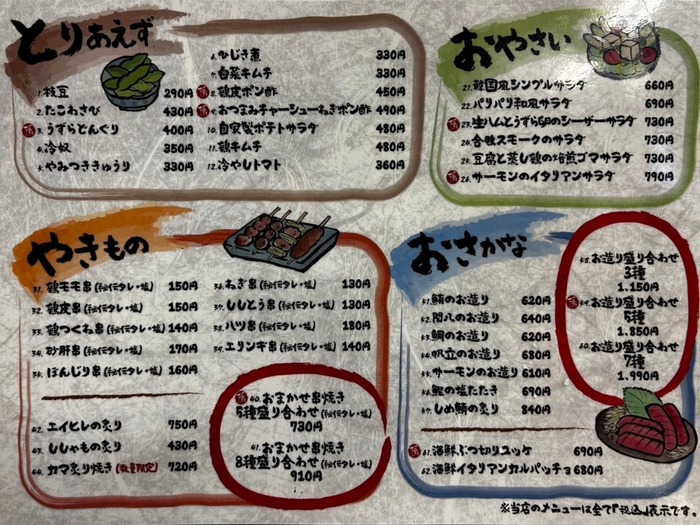 とりあえず
1.枝豆 290円
2.たこわさび 430円
3.うずらとんぐり 400円
4.冷奴 350円
5.やみつききゅうり 330円
6.ひじき煮 330円
7.白菜キムチ 330円
8.鶏皮ポン酢 450円
9.おつまみチャーシューねぎポン酢 490円
10.自家製ポテトサラダ 480円
11.鶏キムチ 480円
12.冷やしトマト 360円
おやさい
21.韓国風シンプルサラダ 660円
22.パリパリ和風サラダ 690円
23.生ハムとうずら卵のシーザーサラダ 730円
24.合鴨スモークのサラダ 730円
25.豆腐と蒸し鶏の焙煎ゴマサラダ 730円
26.サーモンのイタリアンサラダ 790円
やきもの
31.鶏モモ串(秘伝タレ・塩) 150円
32.鶏皮串(秘伝タレ・塩) 150円
33.鶏つくね串(秘伝タレ・塩) 140円
34.砂肝串(秘伝タレ・塩) 170円
35.ぼんじり串(秘伝タレ・塩) 160円
36.ねぎ串(秘伝タレ・塩) 130円
37.ししとう串(秘伝タレ・塩) 130円
38.ハツ串(秘伝タレ・塩) 180円
39.エリンギ串(秘伝タレ・塩) 140円
40.おまかせ串焼き
5種盛り合わせ(秘伝タレ・塩)
730円
41.おまかせ串焼き
8種盛り合わせ(秘伝タレ・塩)
910円
42.エイヒレの炙り 750円
43.ししゃもの炙り 430円
44.カマ炙り焼き(数量限定) 720円
おさかな
51.鮪のお造り 620円
52.間八のお造り 640円
53.鯛のお造り 620円
54.帆立のお造り 680円
55.サーモンのお造り 610円
56.鰹の塩たたき 690円
57.しめ鯖の炙り 840円
58.お造り盛り合わせ
3種
1.150円
59.お造り盛り合わせ
5種
1.850円
60.お造り盛り合わせ
7種
1.990円
61.海鮮ぶつ切りユッケ 690円
62.海鮮イタリアンカルパッチョ 680円
※当店のメニューは全て「税込」表示です。